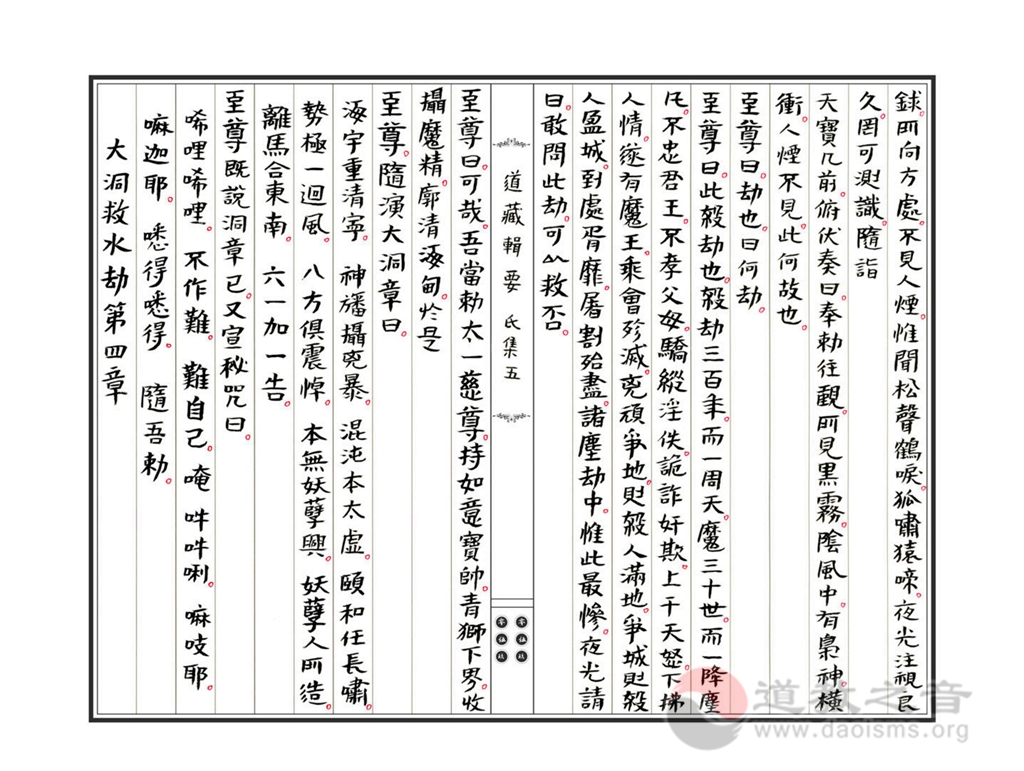 毬所向方處不見人煙惟聞松聲鶴唳狐嘯猿啼夜光注視良
久罔可測識隨詣
天寶几前俯伏奏曰奉勅往觀所見黑霧陰風中有梟神橫
衝人煙不見此何故也
至尊曰劫也曰何劫
至尊曰此殺劫也殺劫三百年而一周天魔三十世而一降塵
凡不忠君王不孝父母驕縱淫佚詭詐奸欺上干天怒下拂
人情遂有魔王乘會殄滅兇頑爭地則殺人滿地爭城則殺
人盈城到處胥靡屠割殆盡諸塵劫中惟此最慘夜光請
曰敢問此劫可以救否
道藏輯要 氐集五
至尊曰可哉吾當勅太一慈尊持如意寶帥青獅下界收
攝魔精廓清海甸於是
至尊隨演大洞章曰
海宇重清寧 神旛攝兇暴 混沌本太虛 頤和任長嘯
勢極一迴風 八方俱震悼 本無妖孽興 妖孽人所造
離馬合東南 六一加一告
至尊既說洞章已又宣秘咒曰
唏哩唏哩 不作難 難自己 唵 吽吽唎 嘛吱耶
嘛迦耶 噁得噁得 隨吾勅
大洞救水劫第四章
道教之音
www.daoisms.org